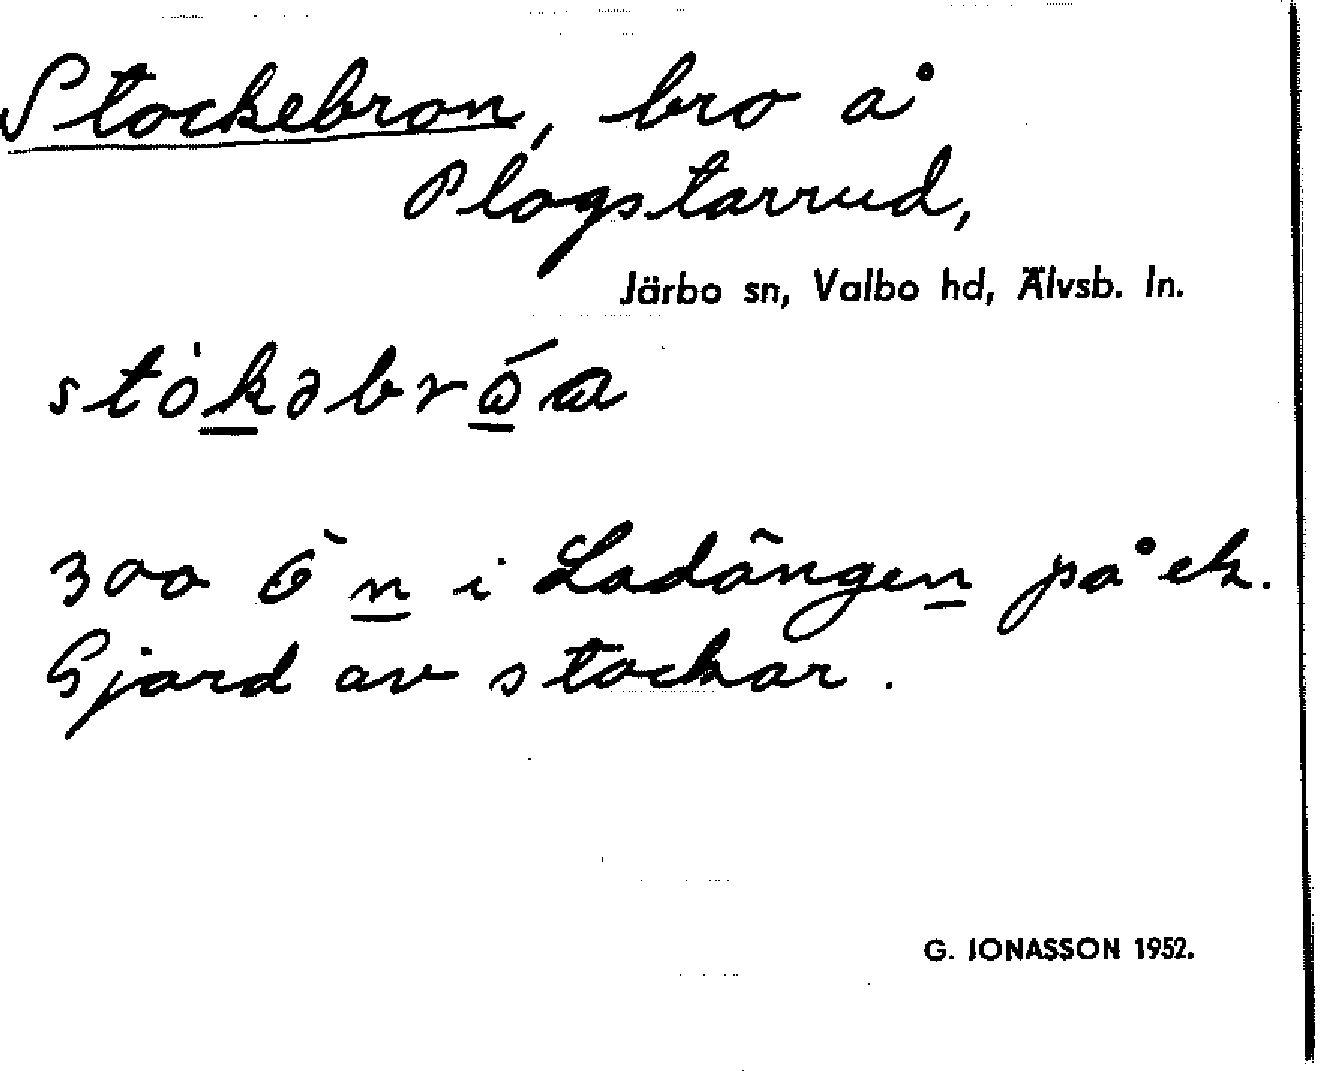 Stockebron, bro å
Plogstarrud,
Järbo sn, Valbo hd, Älvsb. ln.
300 n i Ladängen på ek.
Gjord av stockar.
G. JONASSON 1952.